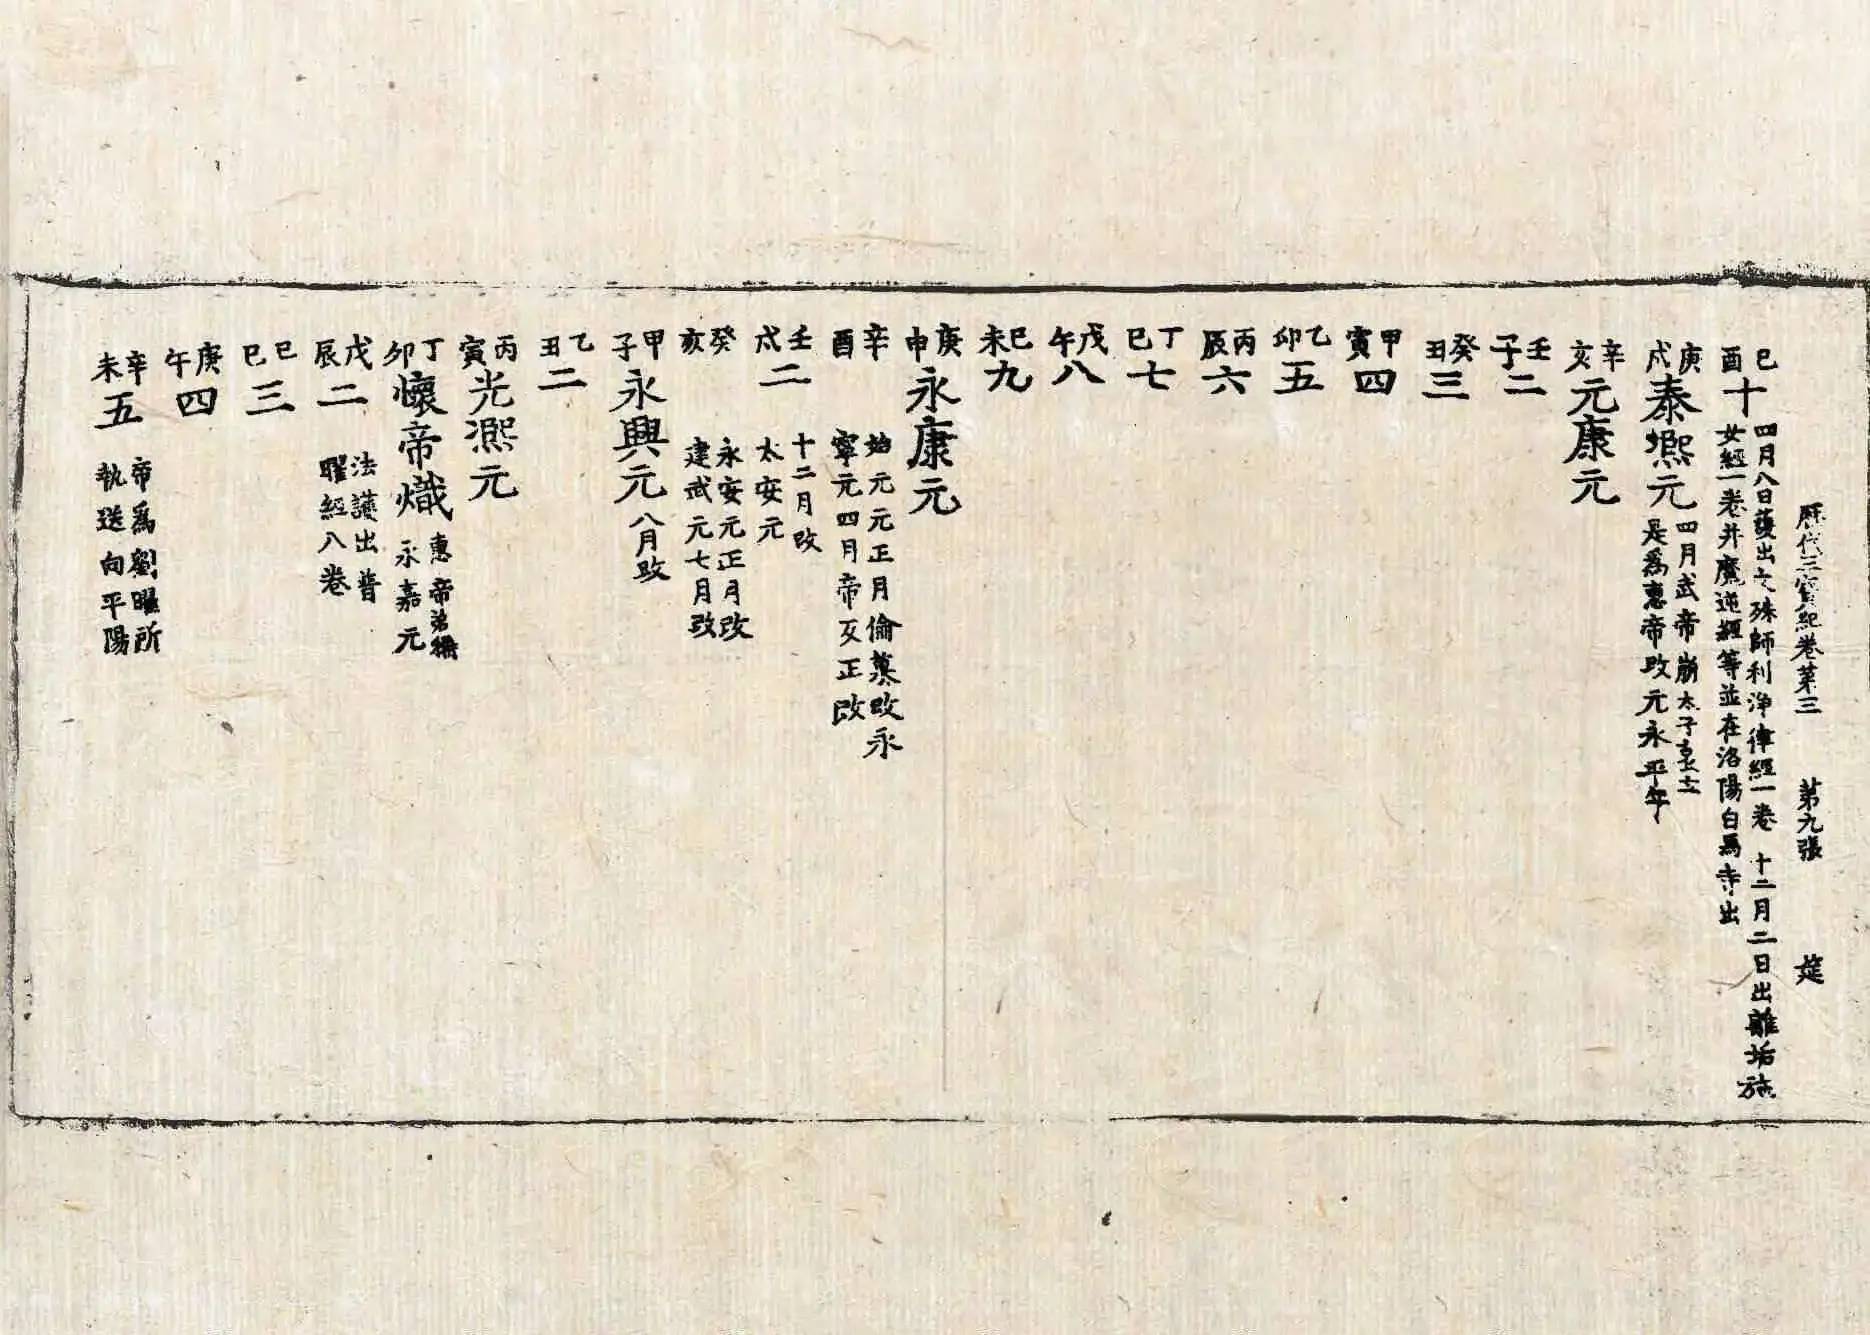 歷代三寶紀卷第三 第九張 莚
己酉十 四月八日護出文殊師利淨律經一卷 十二月二日出離垢施
女經一卷并魔逆經等並在洛陽白馬寺出
庚戌泰熈元 四月武帝崩太子衷立
是爲惠帝改元永平年
辛亥元康元
壬子二
癸丑三
甲寅四
乙卯五
丙辰六
丁巳七
戊午八
己未九
庚申永康元
辛酉 始元元正月倫篡改永
寧元四月帝反正改
壬戌二 十二月改
太安元
癸亥 永安元正月改
建武元七月改
甲子永興元 八月改
乙丑二
丙寅光熈元
丁卯懷帝熾 惠帝弟
永嘉元
戊辰二 法護出普
曜經八卷
己巳三
庚午四
辛未五 帝爲劉曜所
執送向平陽